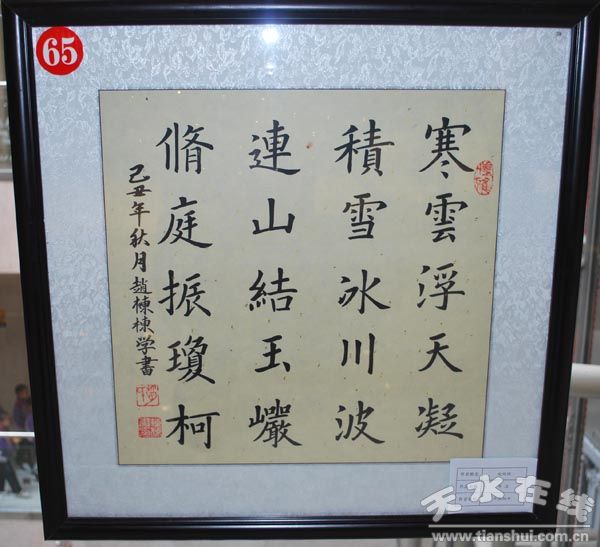 65
寒雲浮天凝
積雪冰川波
連山結玉巖
脩庭振瓊柯
己丑年秋月趙棟棟学書
天水在线
www.tianshui.com.cn